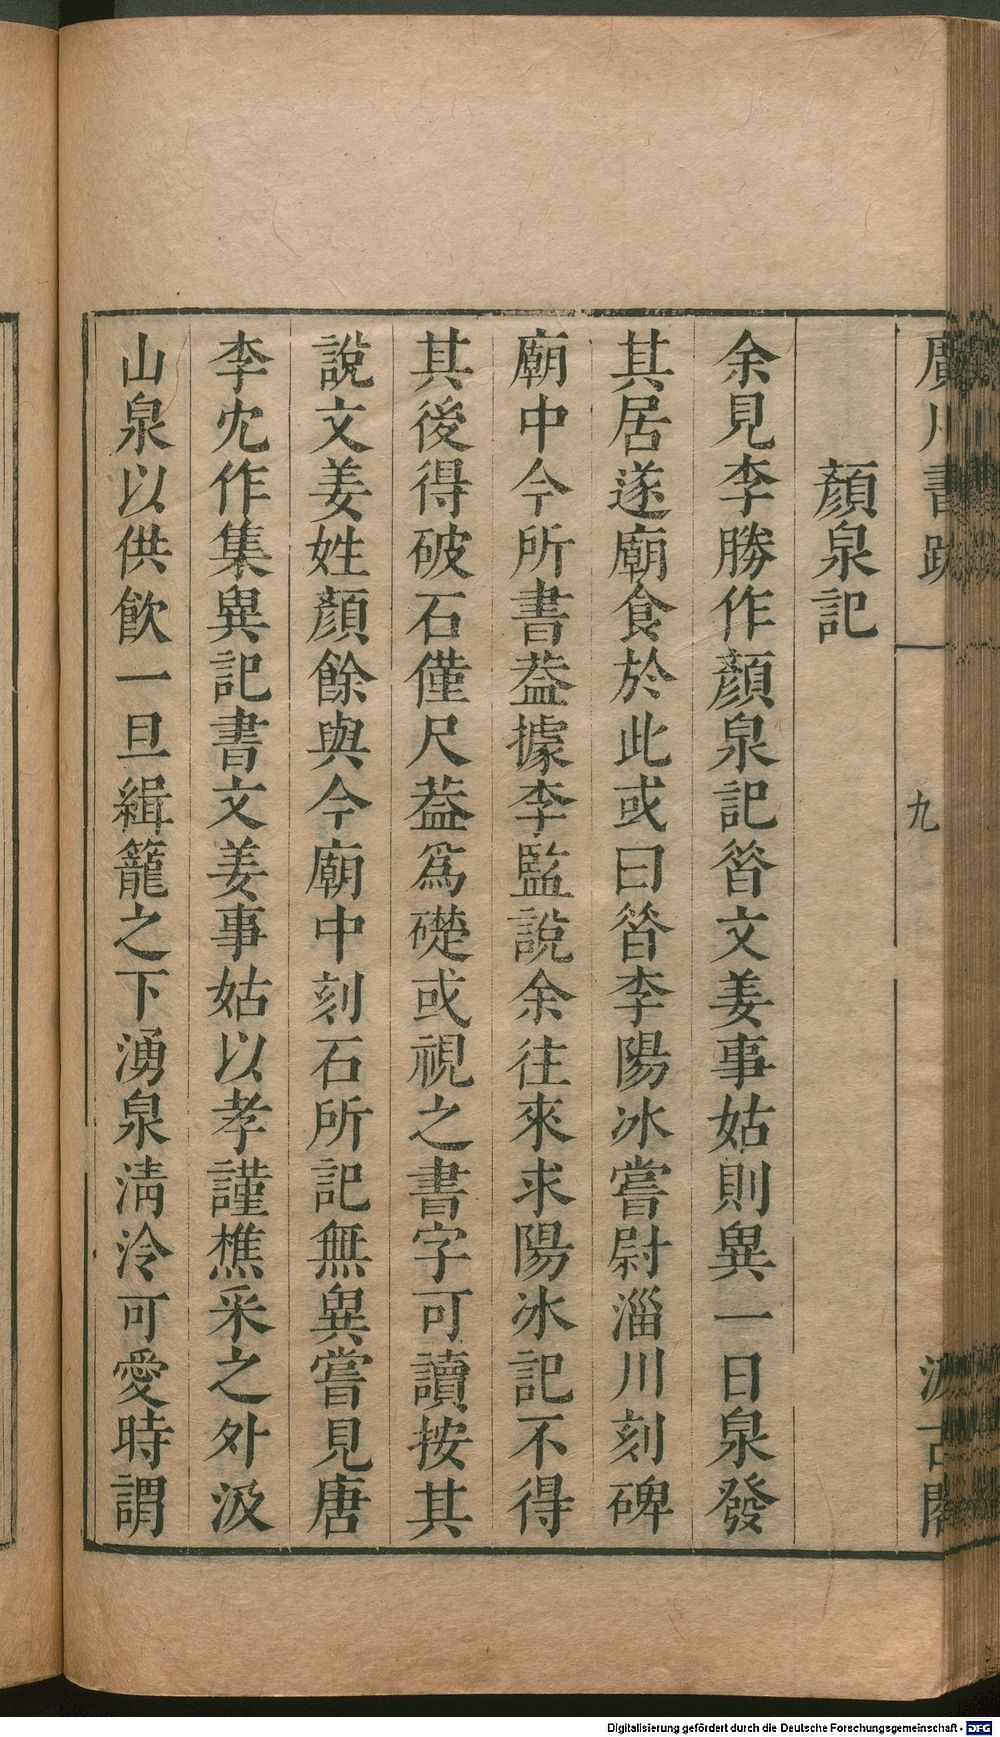 廣川書跋
九
汲古閣
顏泉記
余見李勝作顏泉記昝文姜事姑則異一日泉發
其居遂廟食於此或曰昝李陽冰嘗尉淄川刻碑
廟中今所書葢據李監說余往來求陽冰記不得
其後得破石僅尺葢爲礎或視之書字可讀按其
說文姜姓顏餘與今廟中刻石所記無異嘗見唐
李冘作集異記書文姜事姑以孝謹樵采之外汲
山泉以供飲一旦緝籠之下湧泉淸泠可愛時謂
Digitalisierung gefördert durch die Deutsche Forschungsgemeinschaft - DFG